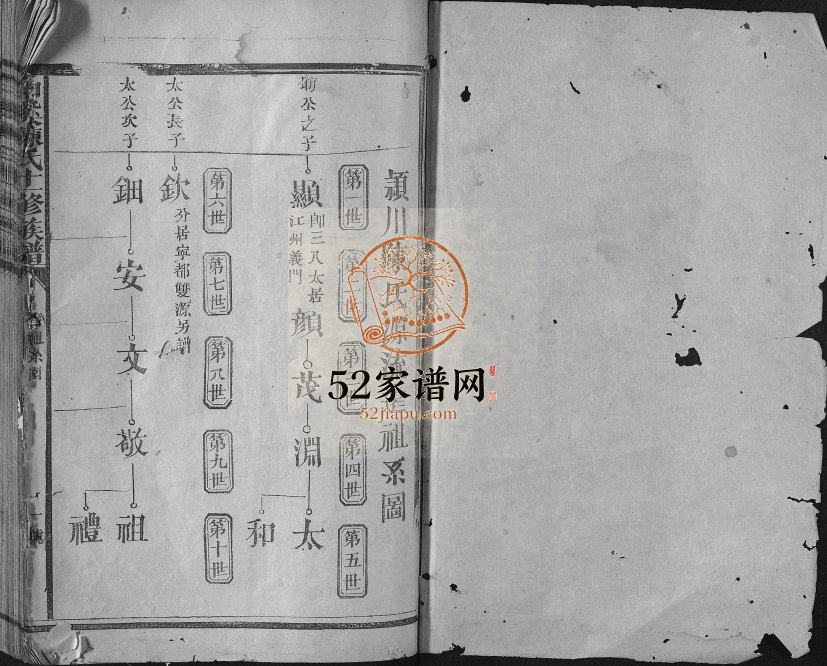 潁川陳氏源流
祖系圖
第一世
第四世
第五世
莭公之子
顯
卽三八太居
江州義門
顏
茂
淵
太
和
第六世
第七世
第八世
第九世
第十世
太公長子
欽
分居寧都雙源另譜
太公次子
鈿
安
文
敬
祖
禮
陳氏十修族譜
祖系圖
52家谱网
52jiapu.com